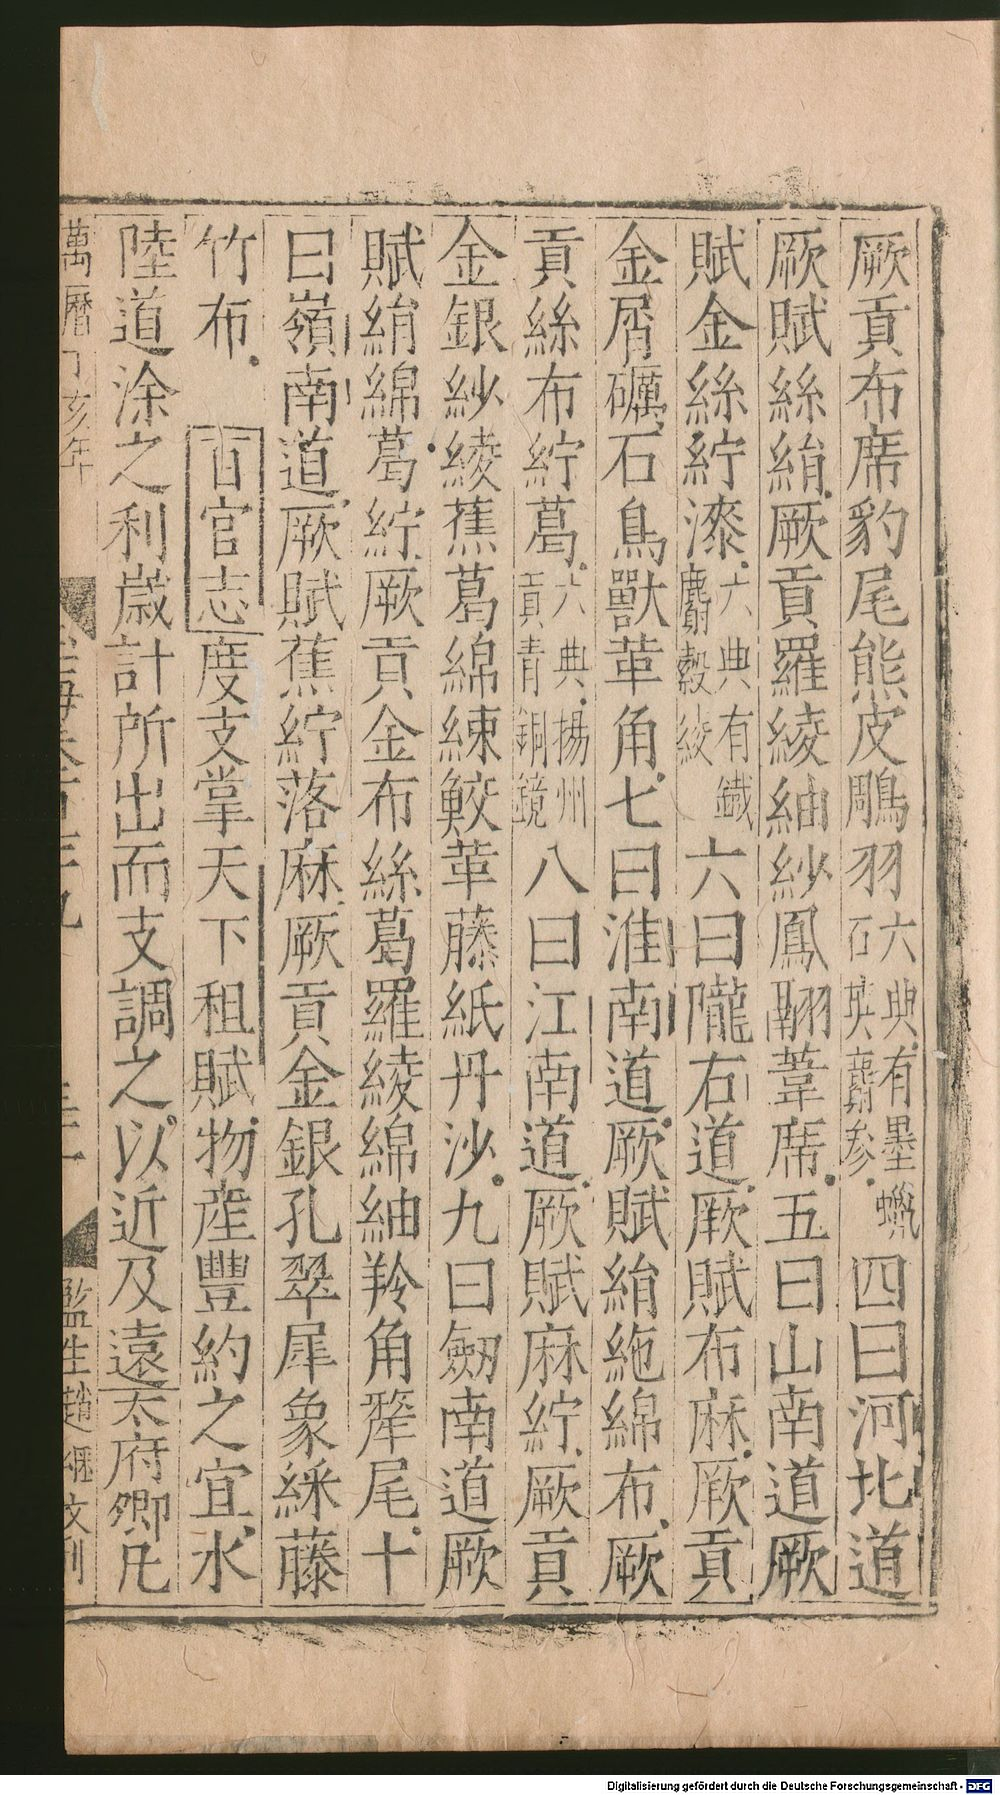 厥貢布席豹尾熊皮鵰羽六典有墨蠟石英麝參四曰河北道
厥賦絲絹厥貢羅綾紬紗鳳翮葦席五曰山南道厥
賦金絲紵漆六典有鐵麝縠綾六曰隴右道厥賦布麻厥貢
金屑礪石鳥獸革角七曰淮南道厥賦絹絁綿布厥
貢絲布紵葛六典揚州貢青銅鏡八曰江南道厥賦麻紵厥貢
金銀紗綾蕉葛綿練鮫革藤紙丹沙九曰劒南道厥
賦絹綿葛紵厥貢金布絲葛羅綾綿紬羚角犛尾十
曰嶺南道厥賦蕉紵落麻厥貢金銀孔翠犀象綵藤
竹布百官志度支掌天下租賦物產豐約之宜水
陸道涂之利歲計所出而支調之以近及遠太府卿凡
萬曆丁亥年 監生趙繼文刊
Digitalisierung gefördert durch die Deutsche Forschungsgemeinschaft - DFG